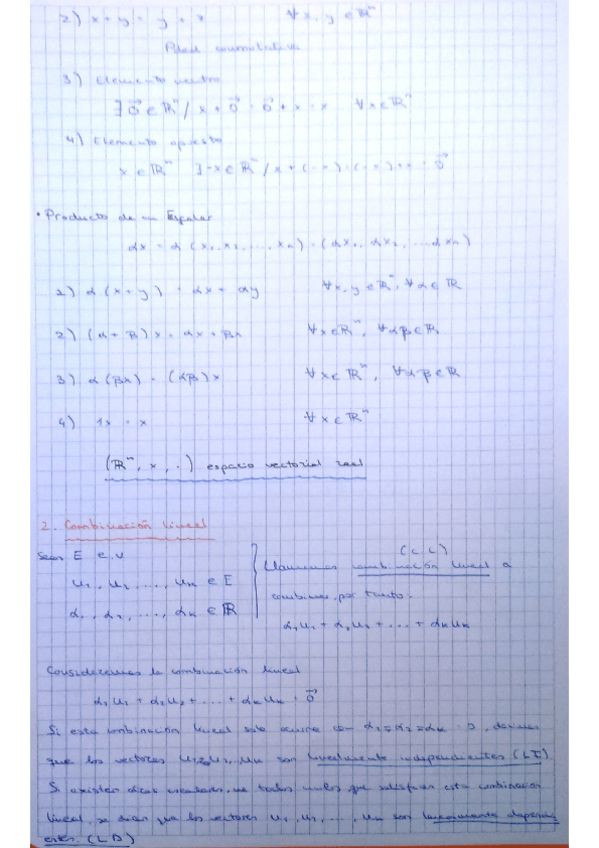 2) x + y = y + x ∀x, y ∈ ℝⁿ
Pdad conmutativa
3) Elemento neutro
∃ 0⃗ ∈ ℝⁿ / x + 0⃗ = 0⃗ + x = x ∀x ∈ ℝⁿ
4) Elemento opuesto
x ∈ ℝⁿ ∃ -x ∈ ℝⁿ / x + (-x) = (-x) + x = 0⃗
• Producto de un Escalar
αx = α (x₁, x₂, ..., xₙ) = (αx₁, αx₂, ... αxₙ)
1) α (x + y) = αx + αy ∀x, y ∈ ℝⁿ, ∀α ∈ ℝ
2) (α + β) x = αx + βx ∀x ∈ ℝⁿ, ∀αβ ∈ ℝ
3) α (βx) = (αβ) x ∀x ∈ ℝⁿ, ∀αβ ∈ ℝ
4) 1x = x ∀x ∈ ℝⁿ
(ℝⁿ, x, ·) espacio vectorial real
2. Combinación lineal
Sean E e.v
u₁, u₂, ..., uₖ ∈ E
α₁, α₂, ..., αₖ ∈ ℝ
(C.L)
Llamaremos combinación lineal a
combinac. por tanto:
α₁u₁ + α₂u₂ + ... + αₖuₖ
Consideramos la combinación lineal
α₁u₁ + α₂u₂ + ... + αₖuₖ = 0⃗
Si esta combinación lineal solo ocurre con α₁ = α₂ = αₖ = 0, decimos
que los vectores u₁, u₂, uₖ son linealmente independientes (LI).
Si existen dichos escalares, no todos nulos que satisfacen esta combinación
lineal, se dirán que los vectores u₁, u₂, ..., uₖ son linealmente dependi
entes. (LD)